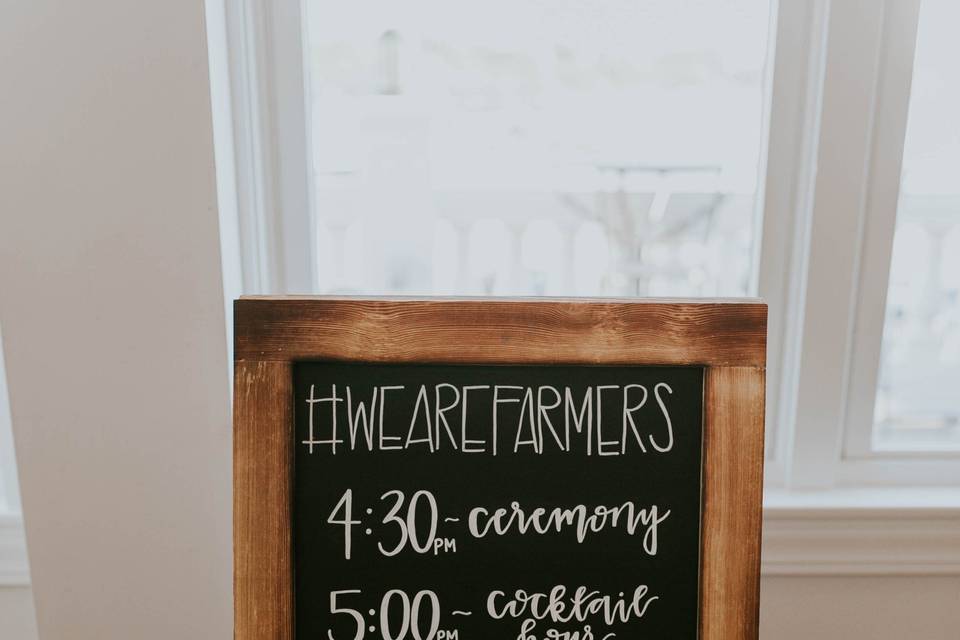 #WEAREFARMERS
4:30PM ~ ceremony
5:00PM ~ cocktail
hour